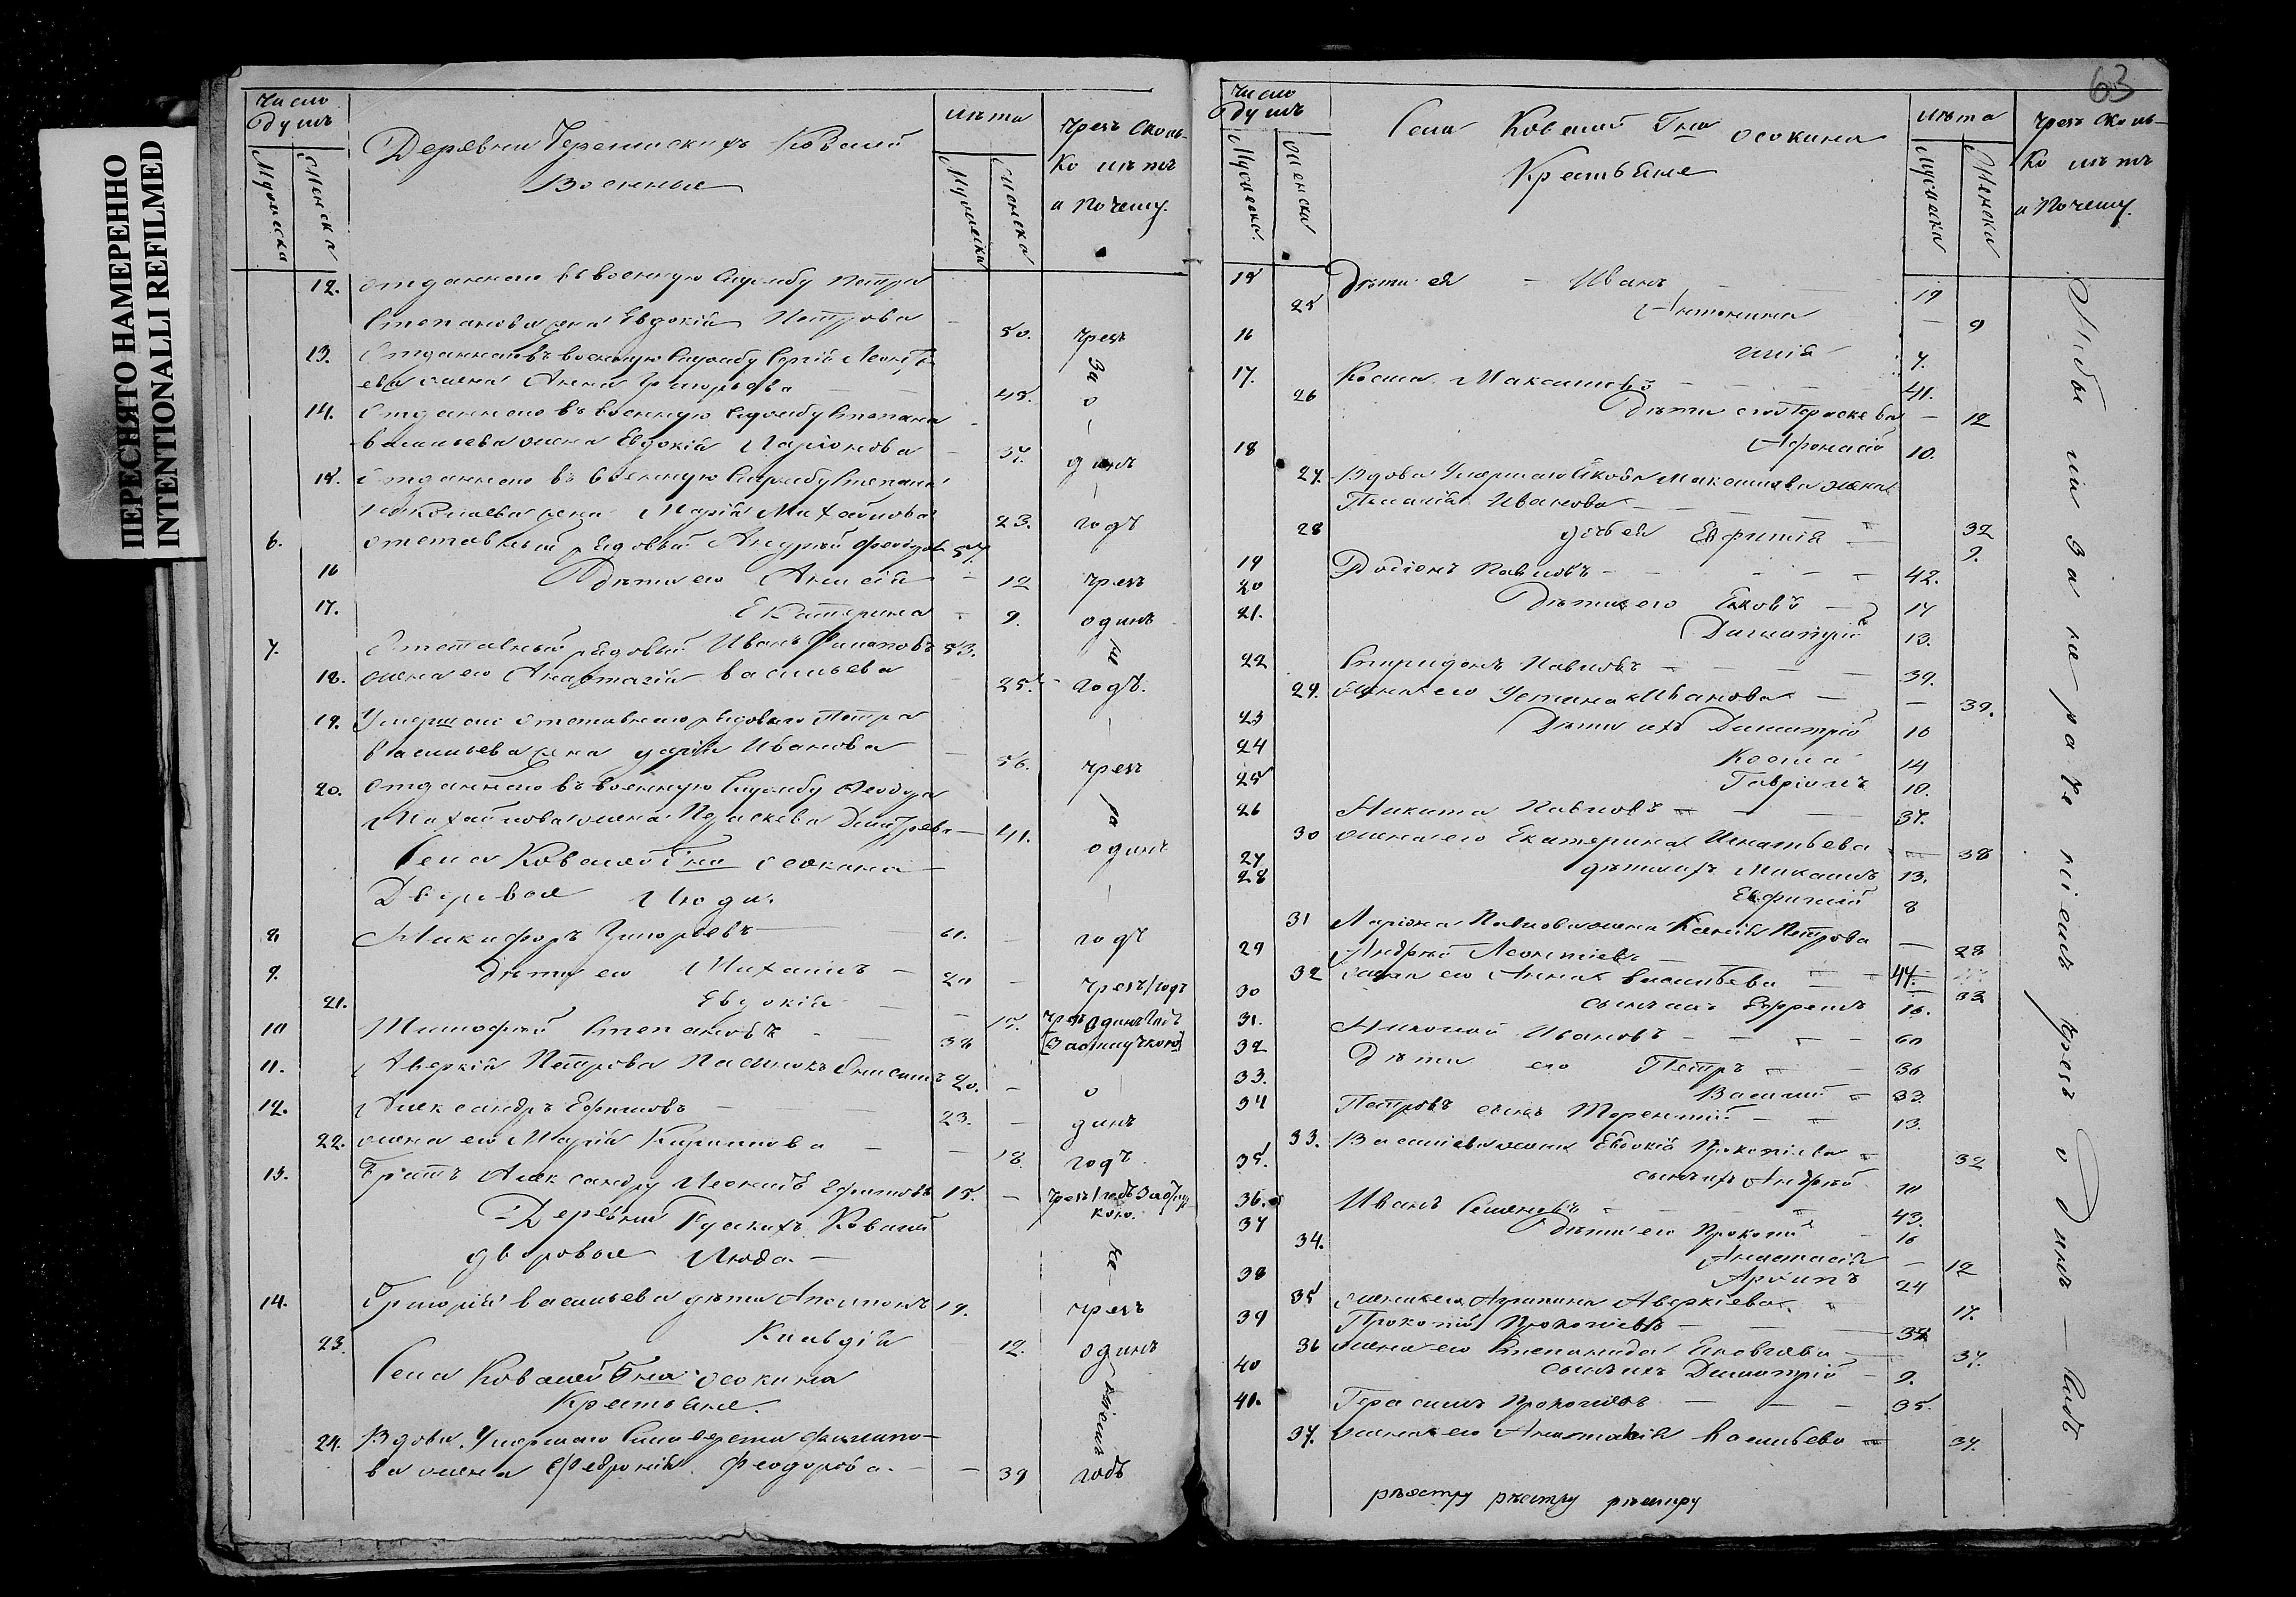 ПЕРЕСНЯТО НАМЕРЕННО
INTENTIONALLI REFILMED
Число
Душъ
Мужеска
Женска
Деревни Черемискихъ Ковалей
Военные
Лѣта
Мужеска
Женска
Чрезъ Сколь-
Ко лѣтъ
и почему.
12. Отданнаго въ военную Службу Петра
Степанова жена Евдокія Петрова — 50. чрезъ
13. Отданнаго въ военную Службу Сергія Леонтъ
ева жена Анна Григорьева 45.
14. Отданнаго въ военную Службу Степана
васильева жена Евдокія Ларіонова — 37. динъ
15. Отданнаго въ военную Службу Степана
Николаева жена Марія Михайлова 23. годъ
6. отставный рядовый Андрей Феодоровъ 57.
16 Дѣти его Анисія — 12 чрезъ
17. Екатерина — 9. одинъ
7. Отставный рядовый Иванъ Филиповъ 53.
18. жена его Анастасія васильева — 25. годъ.
19. Умершаго отставнаго рядоваго Петра
васильева жена дарія Иванова — 56. чрезъ
20. отданнаго въ военную Службу Феодора
Михайлова жена Праскева Димитрева — 41. одинъ
Села Ковалей Гна Осокина
Дворовые Люди.
8. Никифоръ Григорьевъ 61. — годъ
9. дѣти его Михаилъ — 20 — чрезъ 1 годъ
21. Евдокія — 15. чрезъ одинъ годъ
10 Тимофей Степановъ — 38 [За отлучкою]
11. Аверкія Петрова Пасынокъ Онисимъ 20. — о
12. Александръ Ефимовъ — 23. — динъ
22. жена его Марія Кирилова — — 18. годъ
13. Братъ Александру Леонидъ Ефимовъ 15. — чрезъ 1 годъ За отлуч
кою.
Деревни Рускихъ Ковалей
дворовые Люди. —
14. Григорія васильева дѣти Антонъ 19. чрезъ
23. Клавдія 12. одинъ
Села Ковалей Гна Осокина
Крестьяне.
24. Вдова Умершаго Филипо-
ва жена Февронія Феодорова. — — 39 годъ
63
Число
Душъ
Мужеска.
Женска
Села Ковалей Гна Осокина
Крестьяне
Лѣта
Мужеска
Женска
Чрезъ Сколь-
Ко лѣтъ
и почему.
15 Дѣти ея — Иванъ 19
25 Антонина — 9
16 Илія 7.
17. Косма Максимовъ — 41.
26 Дѣти его Параскева — 12
18 Афонасій 10.
27. Вдова Умершаго Якова Максимова жена
Пелагія Иванова — 32
28 дочь ея Евфимія — 9.
19 Родіонъ Павловъ — 42.
20 Дѣти его Яковъ — 17
21. Димитрій 13.
22 Спиридонъ Павловъ — 39.
29. жена его Устинья Иванова — — 39.
23 Дѣти ихъ Димитрій 16
24 Косма 14
25 Гавріилъ 10.
26 Никита Павловъ — 37.
30 жена его Екатерина Игнатьева — 38
27 дѣти ихъ Михаилъ 13.
28 Евфимій 8
31 Ларіона Павлова жена Ксенія Петрова — 28
29 Андрей Леонтіевъ — 44.
32 жена его Анна васильева — 33
30 сынъ ихъ Ефремъ 16.
31. Николай Ивановъ — 60
32 Дѣти его Петръ — 36
33. Василій 33.
34 Петровъ сынъ Терентій — 13.
33. Василіева жена Евдокія Прокопіева — 32
35. сынъ ихъ Андрей 10
36. Иванъ Семеновъ — 43.
37 Дѣти его Прокопій 16
34. Анастасія — 12
38 Архипъ 24
35 жена его Агрипина Аверкіева — 17.
39 Прокопій Прокопіевъ — 38
36 жена его Степанида Яковлева — 37.
40 сынъ ихъ Димитрій — 9.
41. Герасимъ Прокопіевъ — 35.
37. жена его Анастасія Васильева — 37.
реэстру реестру реестру